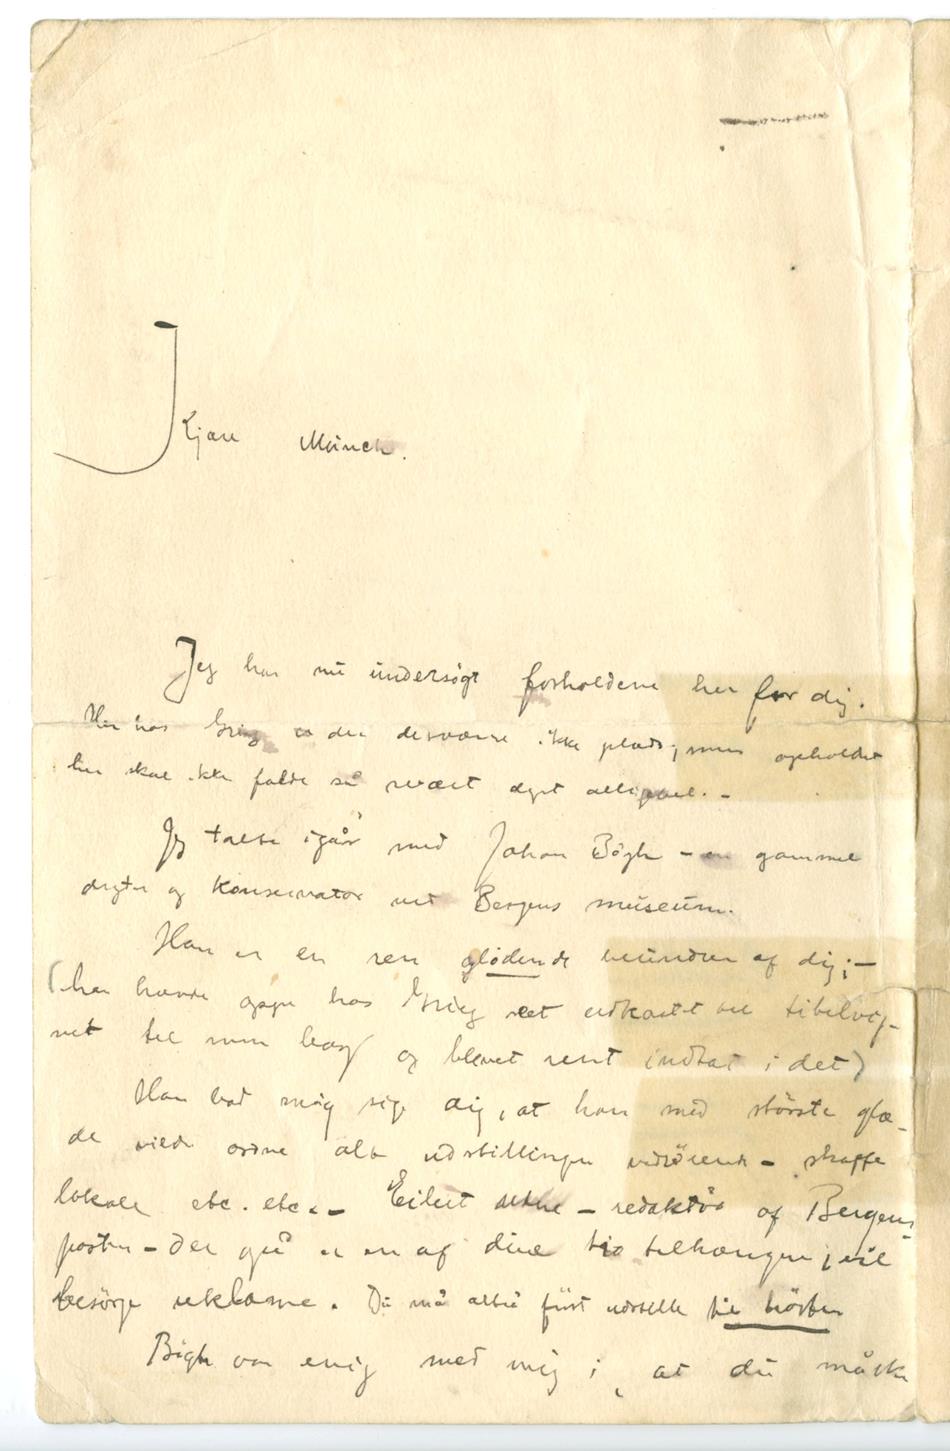 Kjære Munch.
Jeg har nu undersøgt forholdene her for dig.
Her hos Grieg er der desværre ikke plads; men opholdet
her skal ikke falde så svært dyrt alligevel. –
Jeg talte igår med Johan Bögh – en gammel
digter og konservator ved Bergens museum.
Han er en ren glødende beundrer af dig; –
(han havde oppe hos Grieg set udkastet til titelvig-
net til min bog og blevet rent indtat i det)
Han bad mig sige dig, at han med største glæ-
de vilde ordne alt udstillingen vedrörende – skaffe
lokale etc. etc. – Eilert – redaktör af Bergens-
posten – der også er en af dine tilhængere, vil
besörge reklame. Du må altså först udstille til hösten
Bögh var enig med mig i, at du måske